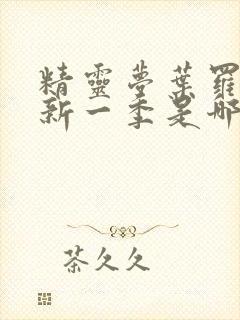 精靈夢葉羅
新一季是哪
茶久久